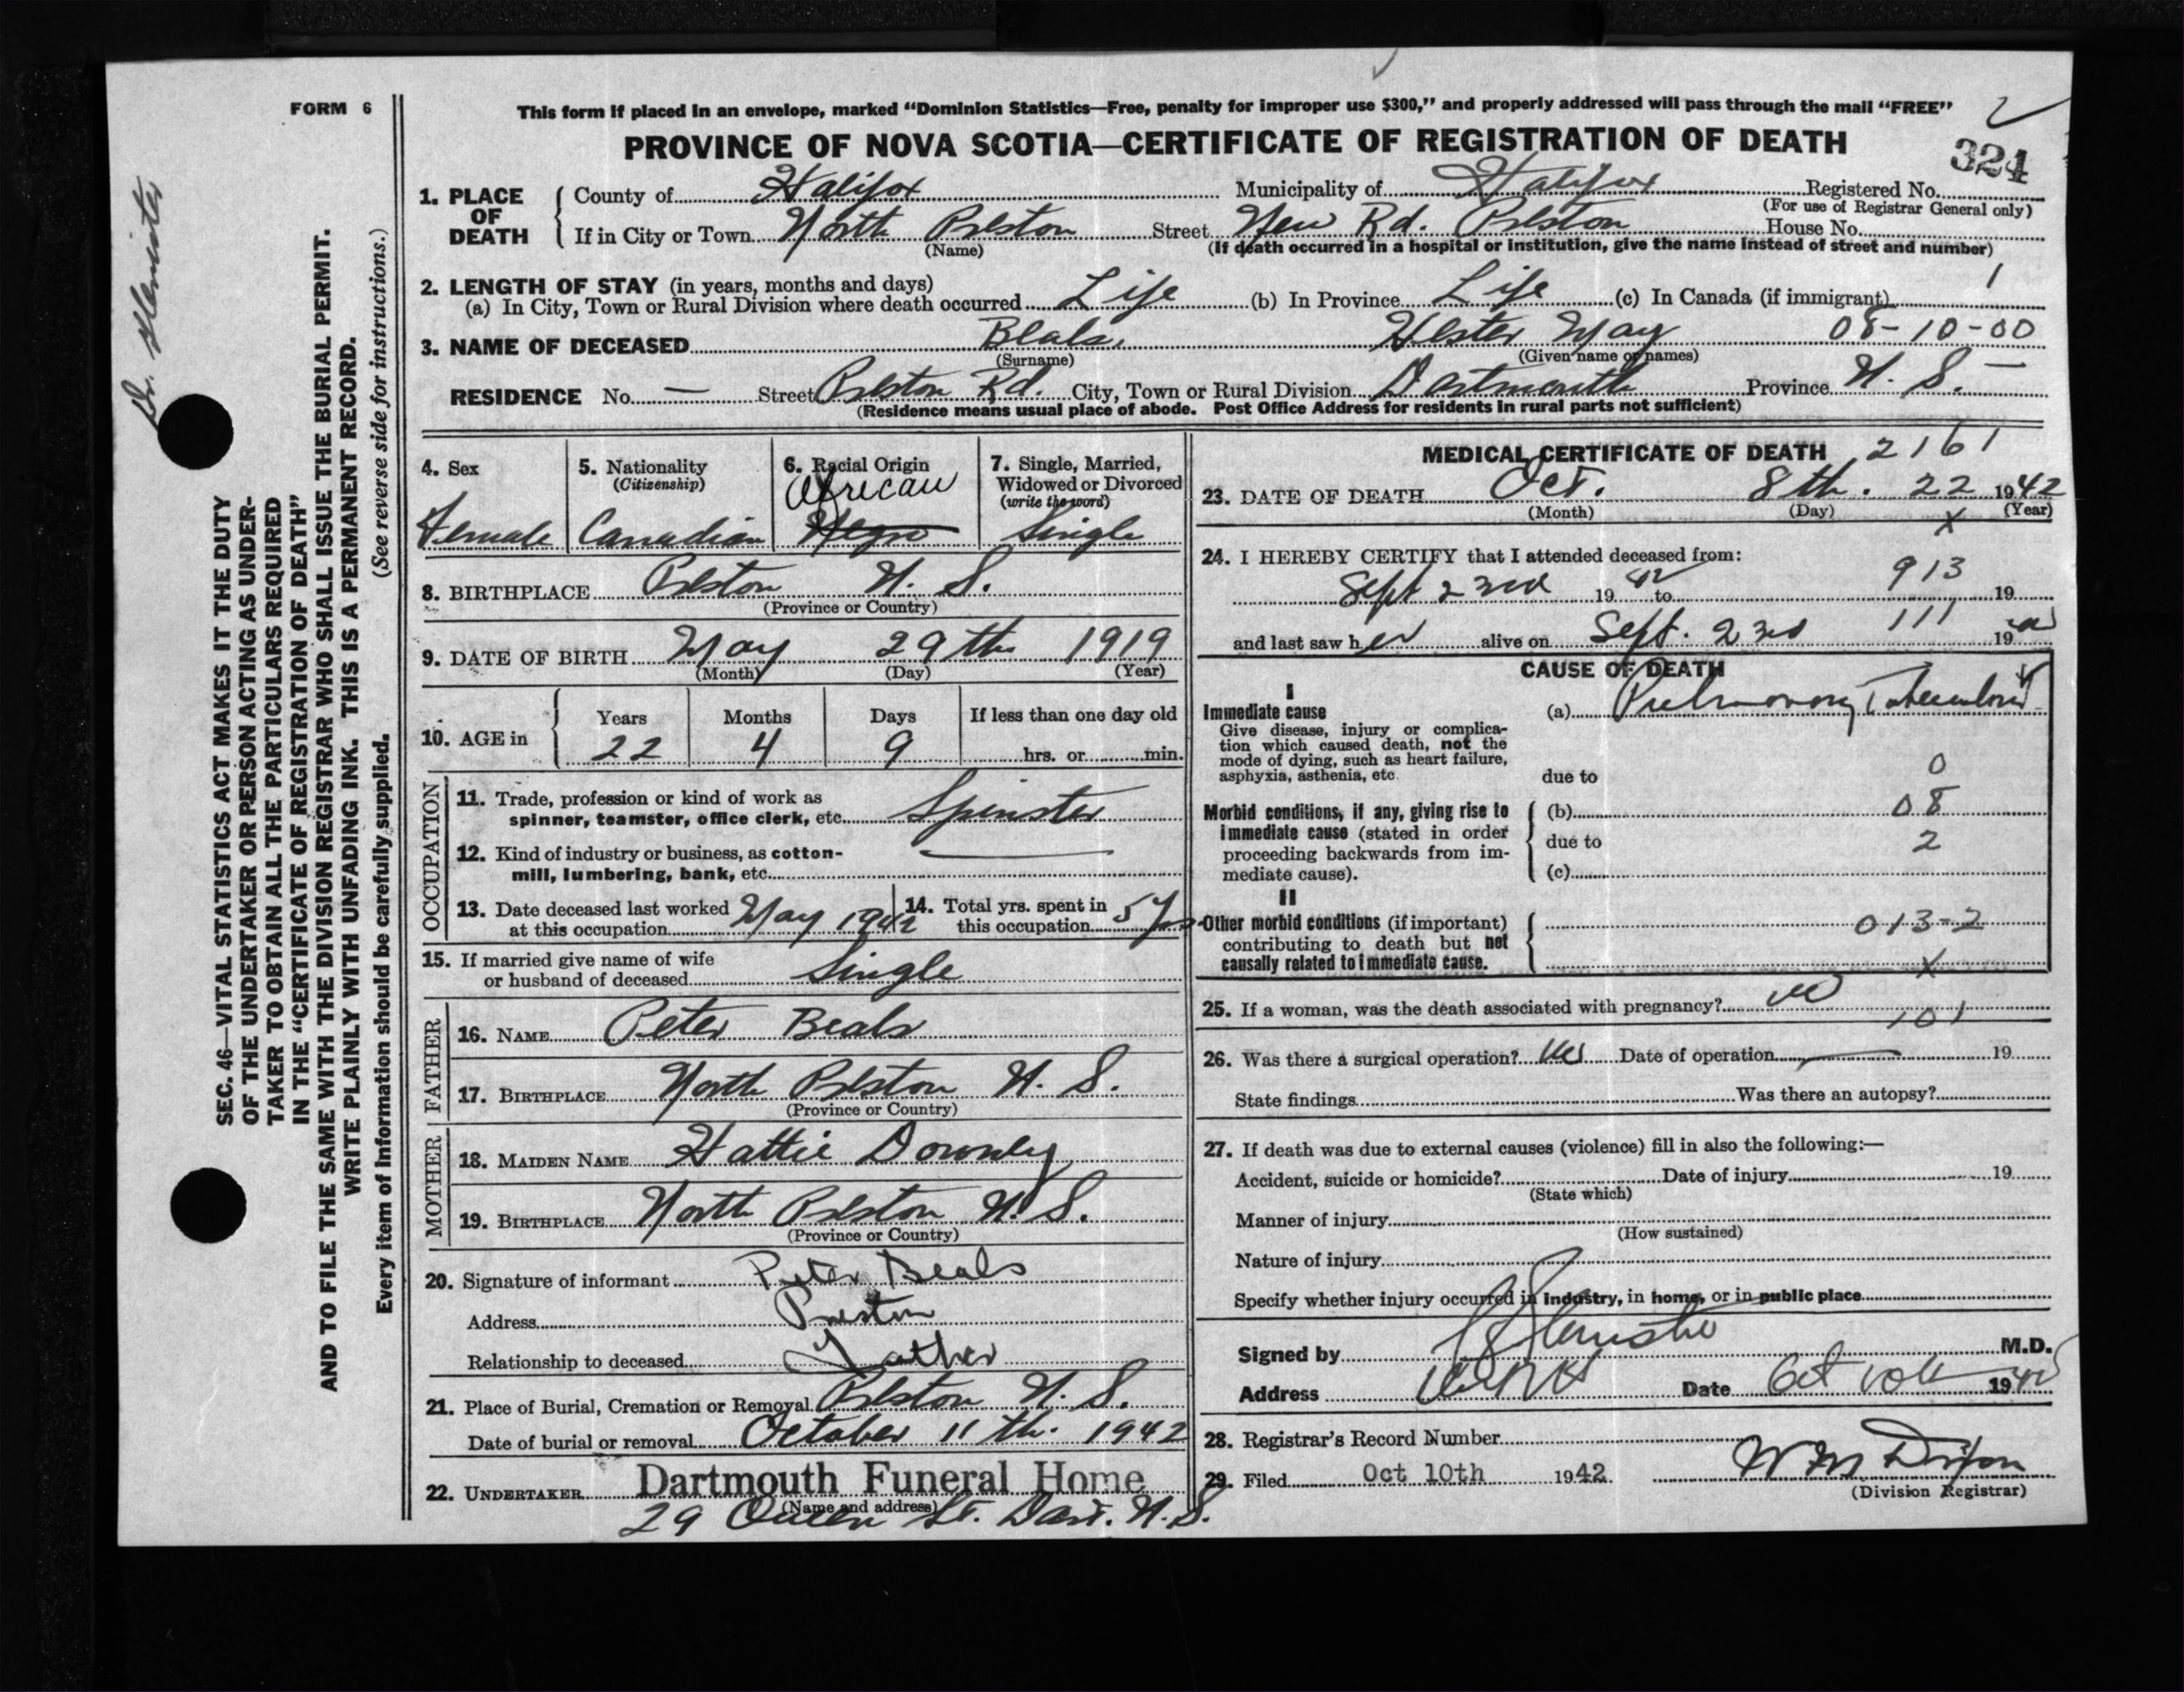 FORM 6
This form if placed in an envelope, marked “Dominion Statistics—Free, penalty for improper use $300,” and properly addressed will pass through the mail “FREE”
PROVINCE OF NOVA SCOTIA—CERTIFICATE OF REGISTRATION OF DEATH
324
1. PLACE OF DEATH County of Halifax Municipality of Halifax Registered No.
(For use of Registrar General only)
If in City or Town North Preston Street New Rd. Preston House No.
(Name) (If death occurred in a hospital or institution, give the name instead of street and number)
2. LENGTH OF STAY (in years, months and days) 1
(a) In City, Town or Rural Division where death occurred Life (b) In Province Life (c) In Canada (if immigrant)
3. NAME OF DECEASED Beals, Hester May 08-10-00
(Surname) (Given name or names)
RESIDENCE No. — Street Preston Rd. City, Town or Rural Division Dartmouth Province N. S. —
(Residence means usual place of abode. Post Office Address for residents in rural parts not sufficient)
4. Sex
Female
5. Nationality
(Citizenship)
Canadian
6. Racial Origin
African
Negro
7. Single, Married,
Widowed or Divorced
(write the word)
Single
8. BIRTHPLACE Preston N. S.
(Province or Country)
9. DATE OF BIRTH May 29th 1919
(Month) (Day) (Year)
10. AGE in
Years Months Days If less than one day old
22 4 9 hrs. or min.
OCCUPATION
11. Trade, profession or kind of work as
spinner, teamster, office clerk, etc. Spinster
12. Kind of industry or business, as cotton-
mill, lumbering, bank, etc. —
13. Date deceased last worked
at this occupation May 1942
14. Total yrs. spent in
this occupation 5 yrs
15. If married give name of wife
or husband of deceased Single
FATHER
16. NAME Peter Beals
17. BIRTHPLACE North Preston N. S.
(Province or Country)
MOTHER
18. MAIDEN NAME Hattie Downey
19. BIRTHPLACE North Preston N. S.
(Province or Country)
20. Signature of informant Peter Beals
Address Preston
Relationship to deceased Father
21. Place of Burial, Cremation or Removal Preston N. S.
Date of burial or removal October 11th. 1942
22. UNDERTAKER Dartmouth Funeral Home
(Name and address)
29 Queen St. Dart. N. S.
MEDICAL CERTIFICATE OF DEATH 2161
23. DATE OF DEATH Oct. 8th. 22 1942
(Month) (Day) (Year)
X
24. I HEREBY CERTIFY that I attended deceased from:
913
Sept 23rd 19 42 to 19
and last saw her alive on Sept. 23rd 111 19
CAUSE OF DEATH
I
Immediate cause
Give disease, injury or complica-
tion which caused death, not the
mode of dying, such as heart failure,
asphyxia, asthenia, etc.
(a) Pulmonary Tuberculosis
due to 0
Morbid conditions, if any, giving rise to
immediate cause (stated in order
proceeding backwards from im-
mediate cause).
(b) 08
due to 2
(c)
II
Other morbid conditions (if important)
contributing to death but not
causally related to immediate cause.
013-2
X
25. If a woman, was the death associated with pregnancy?
101
26. Was there a surgical operation? Date of operation — 19
State findings Was there an autopsy?
27. If death was due to external causes (violence) fill in also the following:—
Accident, suicide or homicide? Date of injury 19
(State which)
Manner of injury
(How sustained)
Nature of injury
Specify whether injury occurred in industry, in home, or in public place
Signed by M.D.
Address Date Oct 10th 1942
28. Registrar's Record Number
29. Filed Oct 10th 1942 W M Dixon
(Division Registrar)
SEC. 46—VITAL STATISTICS ACT MAKES IT THE DUTY
OF THE UNDERTAKER OR PERSON ACTING AS UNDER-
TAKER TO OBTAIN ALL THE PARTICULARS REQUIRED
IN THE “CERTIFICATE OF REGISTRATION OF DEATH”
AND TO FILE THE SAME WITH THE DIVISION REGISTRAR WHO SHALL ISSUE THE BURIAL PERMIT.
WRITE PLAINLY WITH UNFADING INK. THIS IS A PERMANENT RECORD.
(See reverse side for instructions.)
Every item of information should be carefully supplied.
Dr.